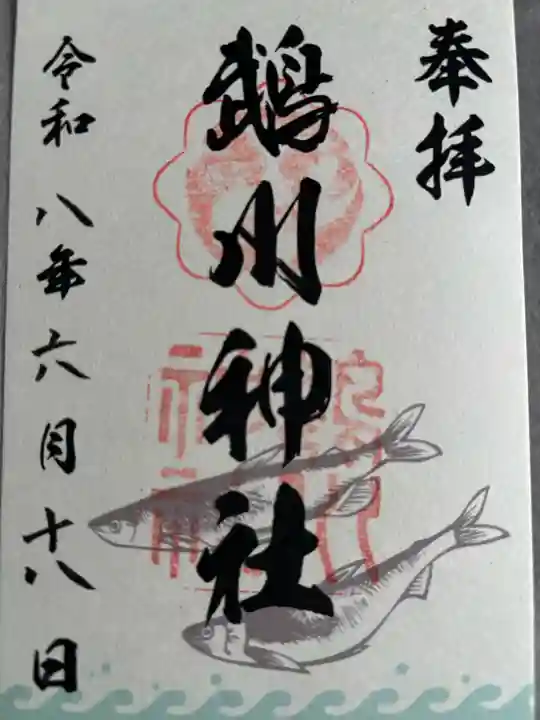 奉拝
鵡川神社
令和八年六月十八日